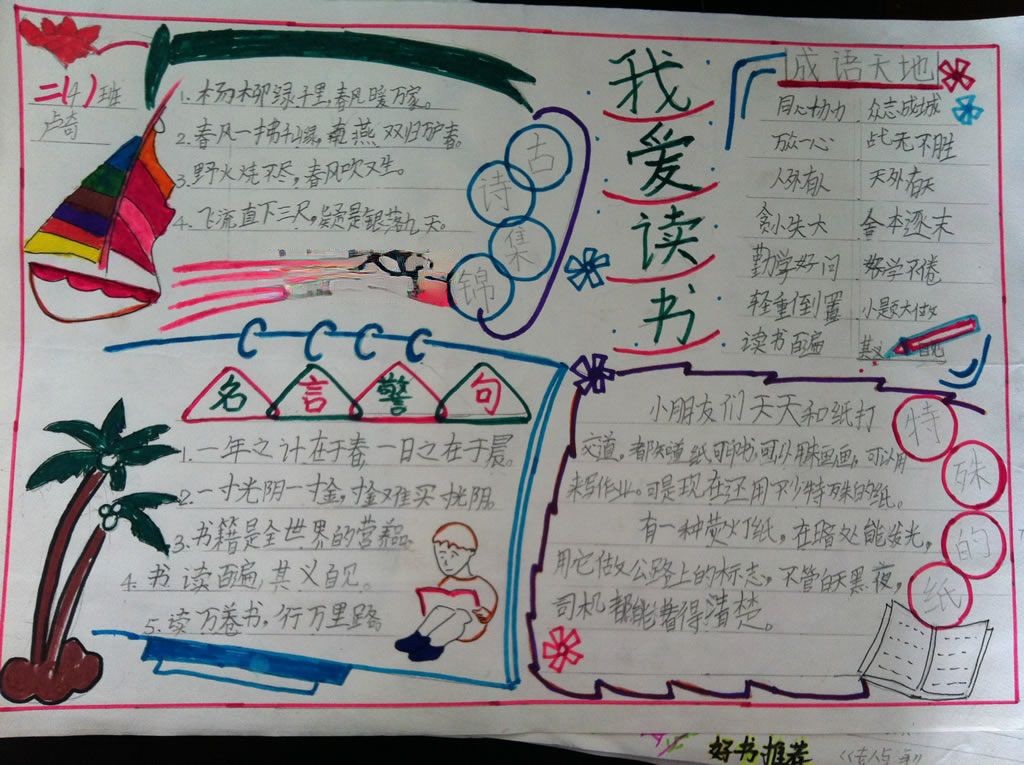 二(4)班
卢奇
1.杨柳绿千里,春风暖万家。
2.春风一拂千山绿,南燕双归万户春。
3.野火烧不尽,春风吹又生。
4.飞流直下三尺,疑是银落九天。
古
诗
集
锦
我
爱
读
书
成语天地
同心协力 众志成城
万众一心 战无不胜
人外有人 天外有天
贪小失大 舍本逐末
勤学好问 好学不倦
轻重倒置 小题大做
读书百遍 其义自见
名言警句
1.一年之计在于春,一日之在于晨。
2.一寸光阴一寸金,寸金难买寸光阴。
3.书籍是全世界的营养品。
4.书读百遍,其义自见。
5.读万卷书,行万里路
特
殊
的
纸
小朋友们天天和纸打
交道,都知道纸可印书,可以用来画画,可以用
来写作业。可是现在还用不少特殊的纸。
有一种荧火灯纸,在暗处能发光,
用它做公路上的标志,不管白天黑夜,
司机都能看得清楚。
好书推荐